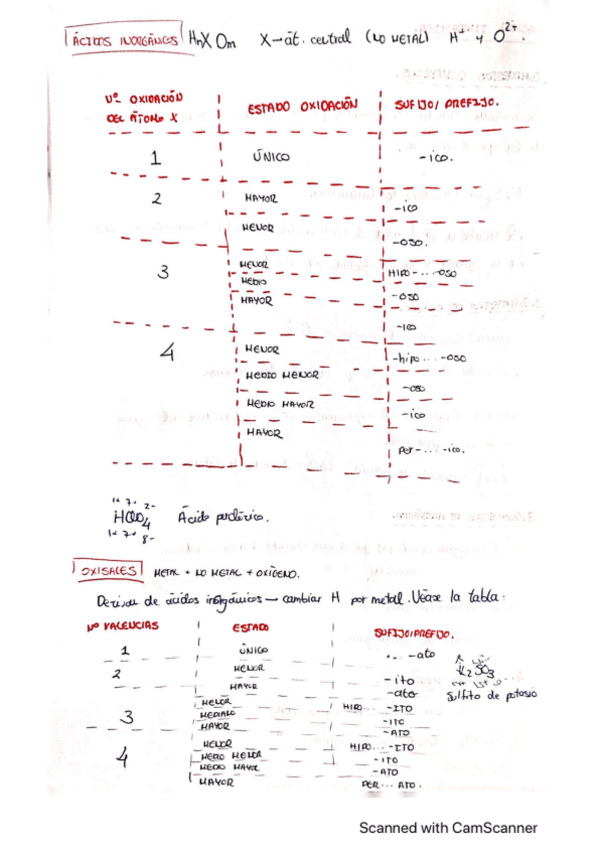 ÁCIDOS INORGÁNICOS HnXOm X→ át. central (NO METAL) H+ y O2+.
Nº OXIDACIÓN DEL ÁTOMO X ESTADO OXIDACIÓN SUFIJO/PREFIJO.
1 ÚNICO -ico.
2 MAYOR -ico
MENOR -oso.
3 MENOR HIPO-...-oso
MEDIO -oso
MAYOR -ico
4 MENOR -hipo...-oso
MEDIO MENOR -oso
MEDIO MAYOR -ico
MAYOR per-...-ico.
1+ 7+ 2-
HClO4 Ácido perclórico.
1+ 7+ 8-
OXISALES METAL + NO METAL + OXÍGENO.
Derivan de ácidos inorgánicos → cambiar H por metal. Véase la tabla:
Nº VALENCIAS ESTADO SUFIJO/PREFIJO.
1 ÚNICO ...-ato
2 MENOR -ito
MAYOR -ato
K2SO3
Sulfito de potasio
3 MENOR HIPO...-ITO
MEDIANO -ITO
MAYOR -ATO
4 MENOR HIPO...-ITO
MEDIO MENOR -ITO
MEDIO MAYOR -ATO
MAYOR PER...ATO.
Scanned with CamScanner